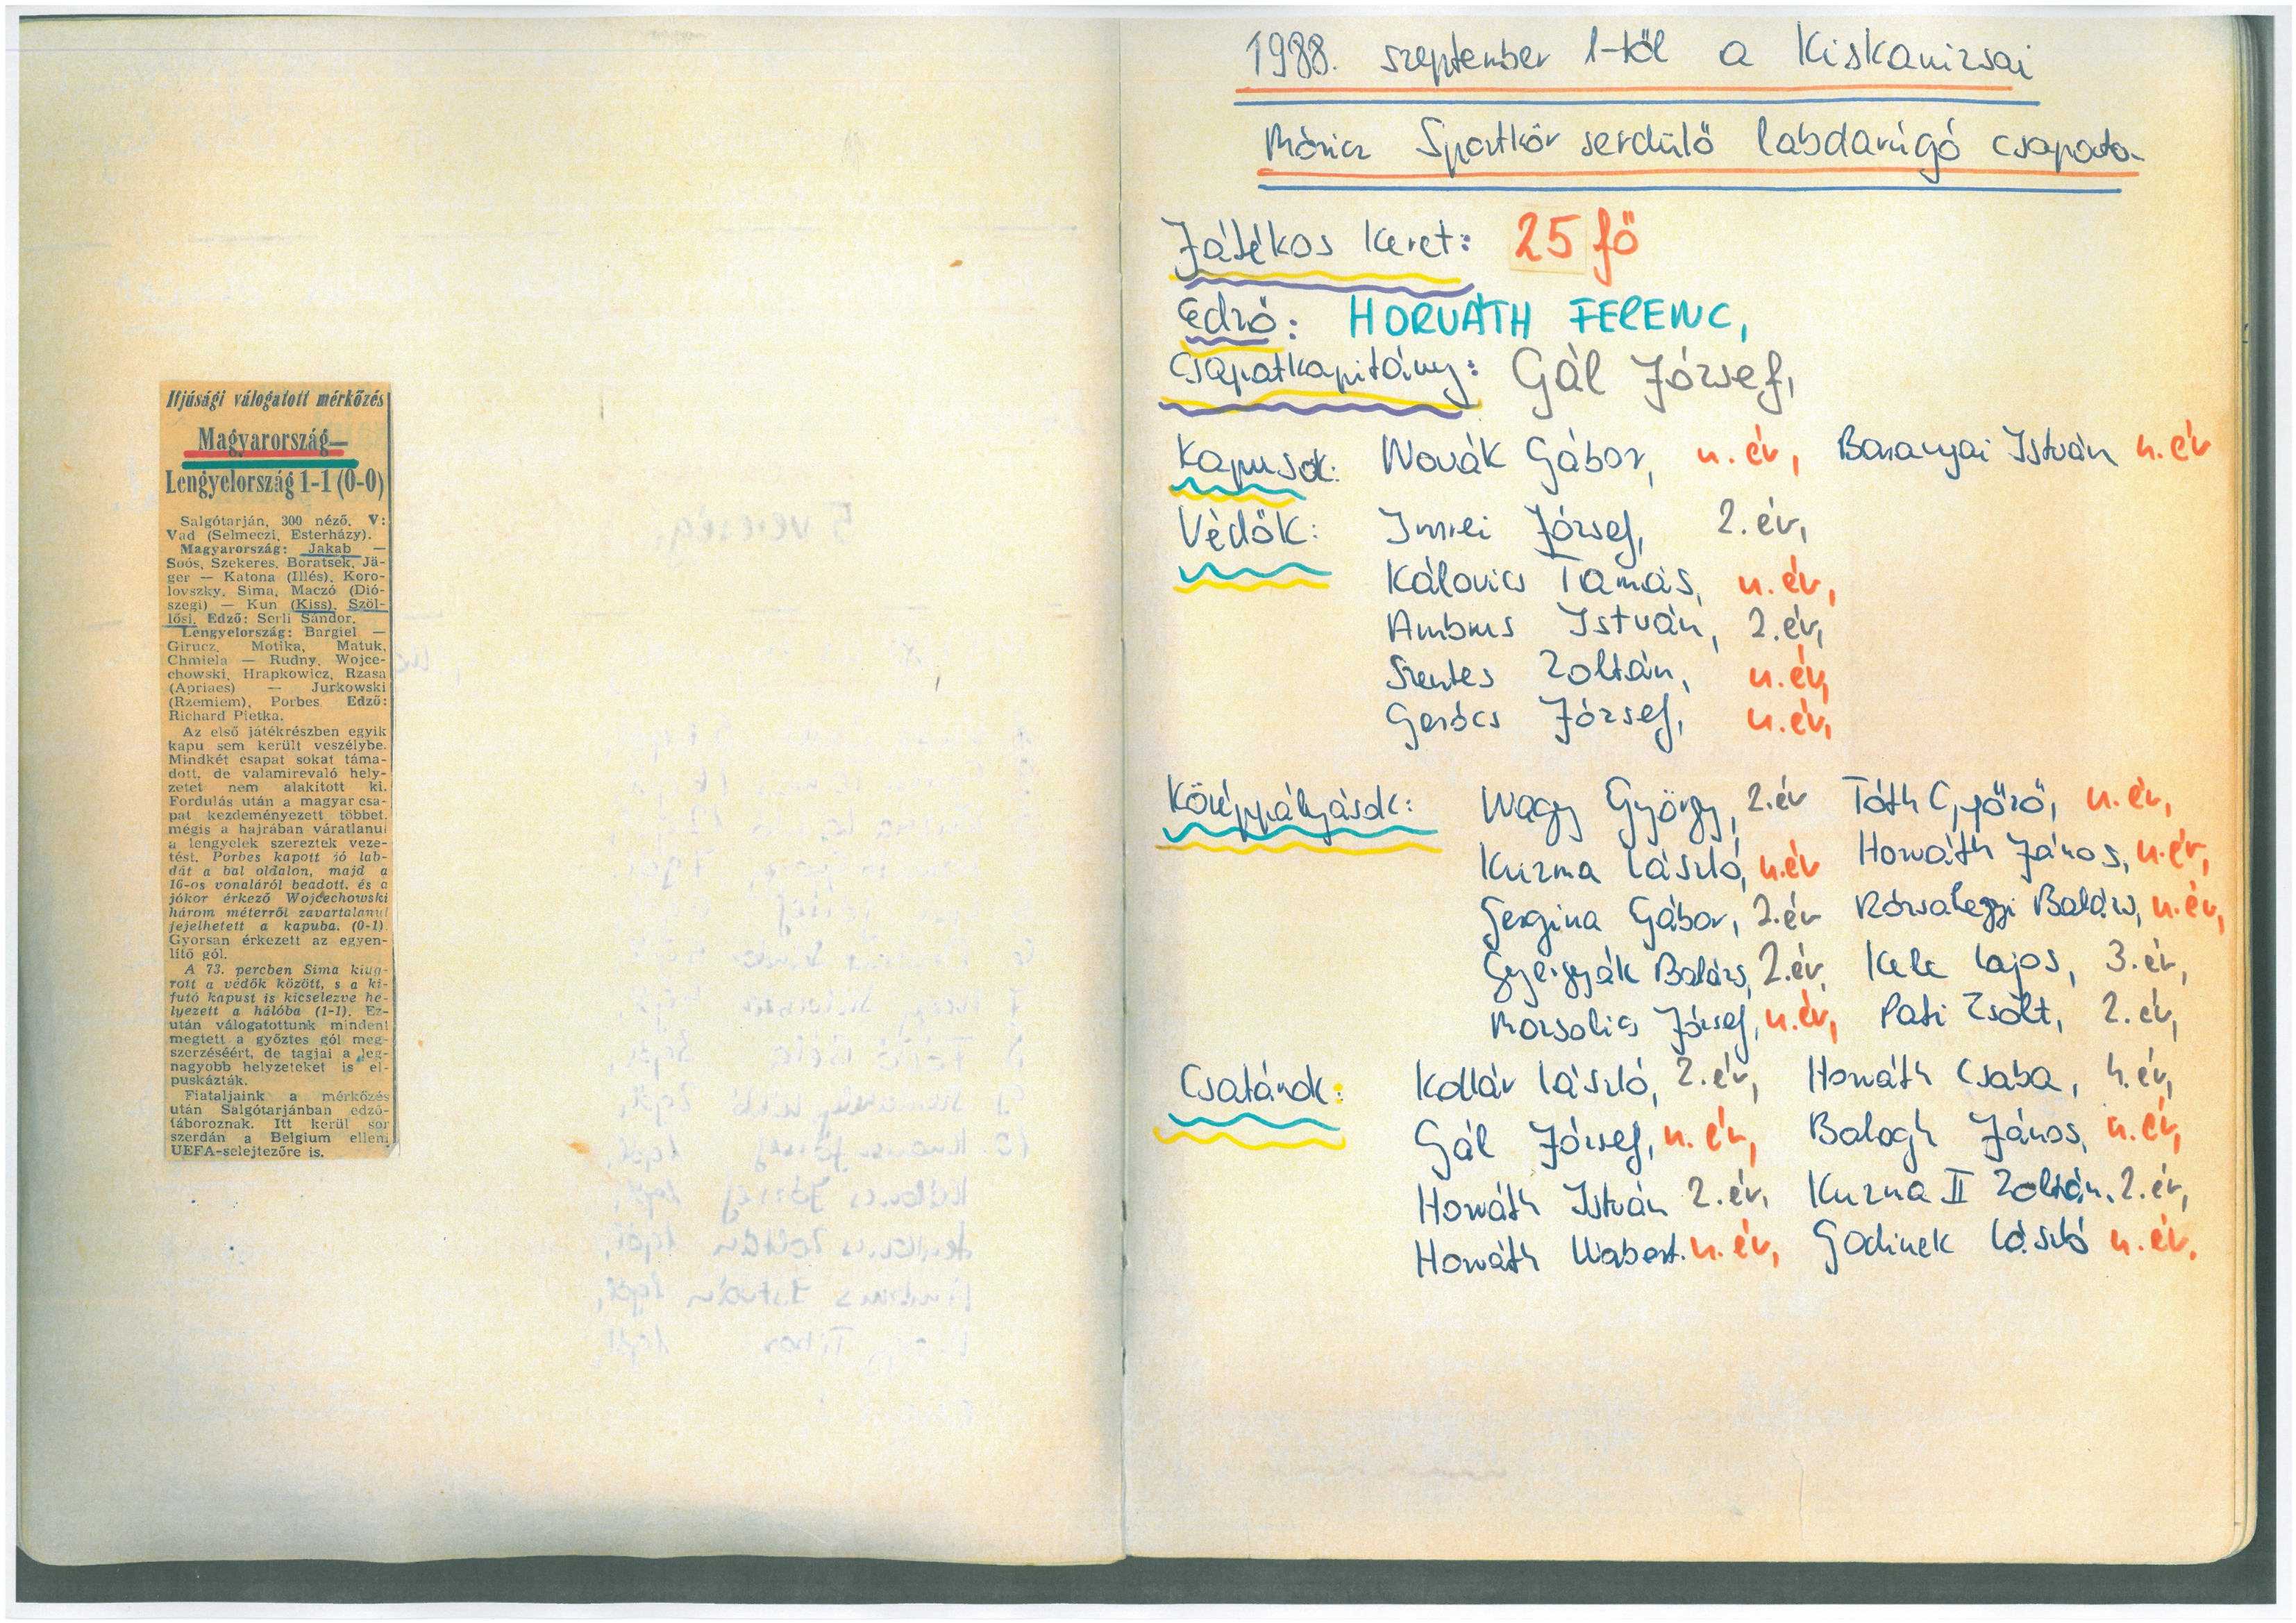 Ifjúsági válogatott mérkőzés
Magyarország—
Lengyelország 1-1 (0-0)
Salgótarján, 300 néző. V:
Vad (Selmeczi, Esterházy).
Magyarország: Jakab —
Soós, Szekeres, Boratsek, Jä-
ger — Katona (Illés), Koro-
lovszky, Sima, Maczó (Dió-
szegi) — Kun (Kiss), Szöl-
lősi. Edző: Serli Sándor.
Lengyelország: Bargiel —
Girucz, Motika, Matuk,
Chmiela — Rudny, Wojce-
chowski, Hrapkowicz, Rzasa
(Apriaes) — Jurkowski
(Rzemiem), Porbes. Edző:
Richard Pietka.
Az első játékrészben egyik
kapu sem került veszélybe.
Mindkét csapat sokat táma-
dott, de valamirevaló hely-
zetet nem alakított ki.
Fordulás után a magyar csa-
pat kezdeményezett többet,
mégis a hajrában váratlanul
a lengyelek szereztek veze-
tést. Porbes kapott jó lab-
dát a bal oldalon, majd a
16-os vonaláról beadott, és a
jókor érkező Wojcechowski
három méterről zavartalanul
fejelhetett a kapuba. (0-1).
Gyorsan érkezett az egyen-
lítő gól.
A 73. percben Sima kiug-
rott a védők között, s a ki-
futó kapust is kicselezve he-
lyezett a hálóba (1-1). Ez-
után válogatottunk mindent
megtett a győztes gól meg-
szerzéséért, de tagjai a leg-
nagyobb helyzeteket is el-
puskázták.
Fiataljaink a mérkőzés
után Salgótarjánban edző-
táboroznak. Itt kerül sor
szerdán a Belgium elleni
UEFA-selejtezőre is.
1988. szeptember 1-től a Kiskanizsai
Móricz Sportkör serdülő labdarúgó csapata
Játékos keret: 25 fő
Edző: HORVÁTH FERENC,
Csapatkapitány: Gál József,
Kapusok: Novák Gábor, u. év, Baranyai István u. év
Védők: Imrei József, 2. év,
Kálovics Tamás, u. év,
Ambrus István, 2. év,
Szentes Zoltán, u. év,
Gerócs József, u. év,
Középpályások: Nagy György, 2. év Tóth Győző, u. év,
Kuzma László, u. év Horváth János, u. év,
Gergina Gábor, 2. év Rózsahegyi Balázs, u. év,
Gyergyák Balázs, 2. év, Kele Lajos, 3. év,
Morsolics József, u. év, Pati Zsolt, 2. év,
Csatárok: Kollár László, 2. év, Horváth Csaba, 4. év,
Gál József, u. év, Balogh János, u. év,
Horváth István 2. év, Kuzma II Zoltán, 2. év,
Horváth Norbert. u. év, Godinek László u. év.